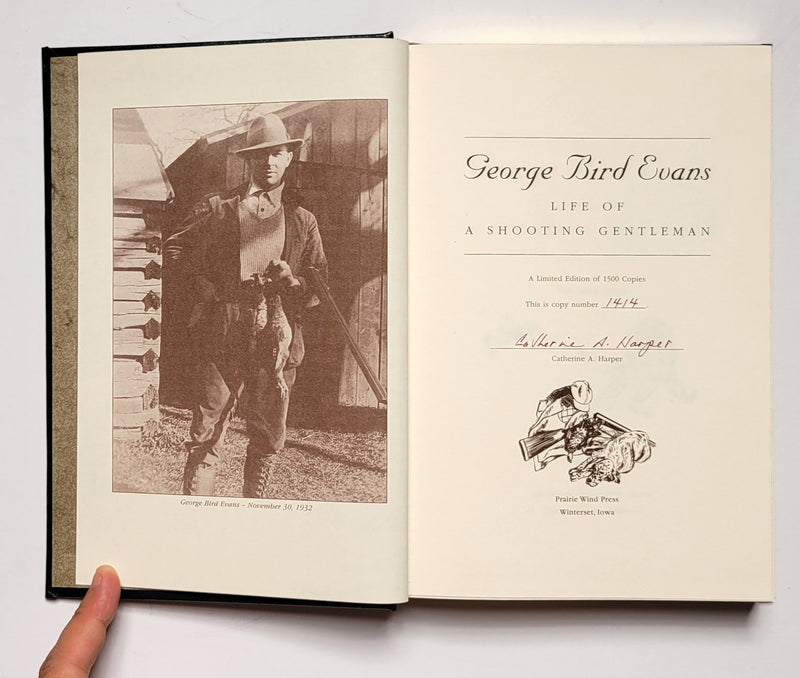 George Bird Evans – November 30, 1932
George Bird Evans
LIFE OF
A SHOOTING GENTLEMAN
A Limited Edition of 1500 Copies
This is copy number 1414.
Catherine A. Harper
Catherine A. Harper
Prairie Wind Press
Winterset, Iowa